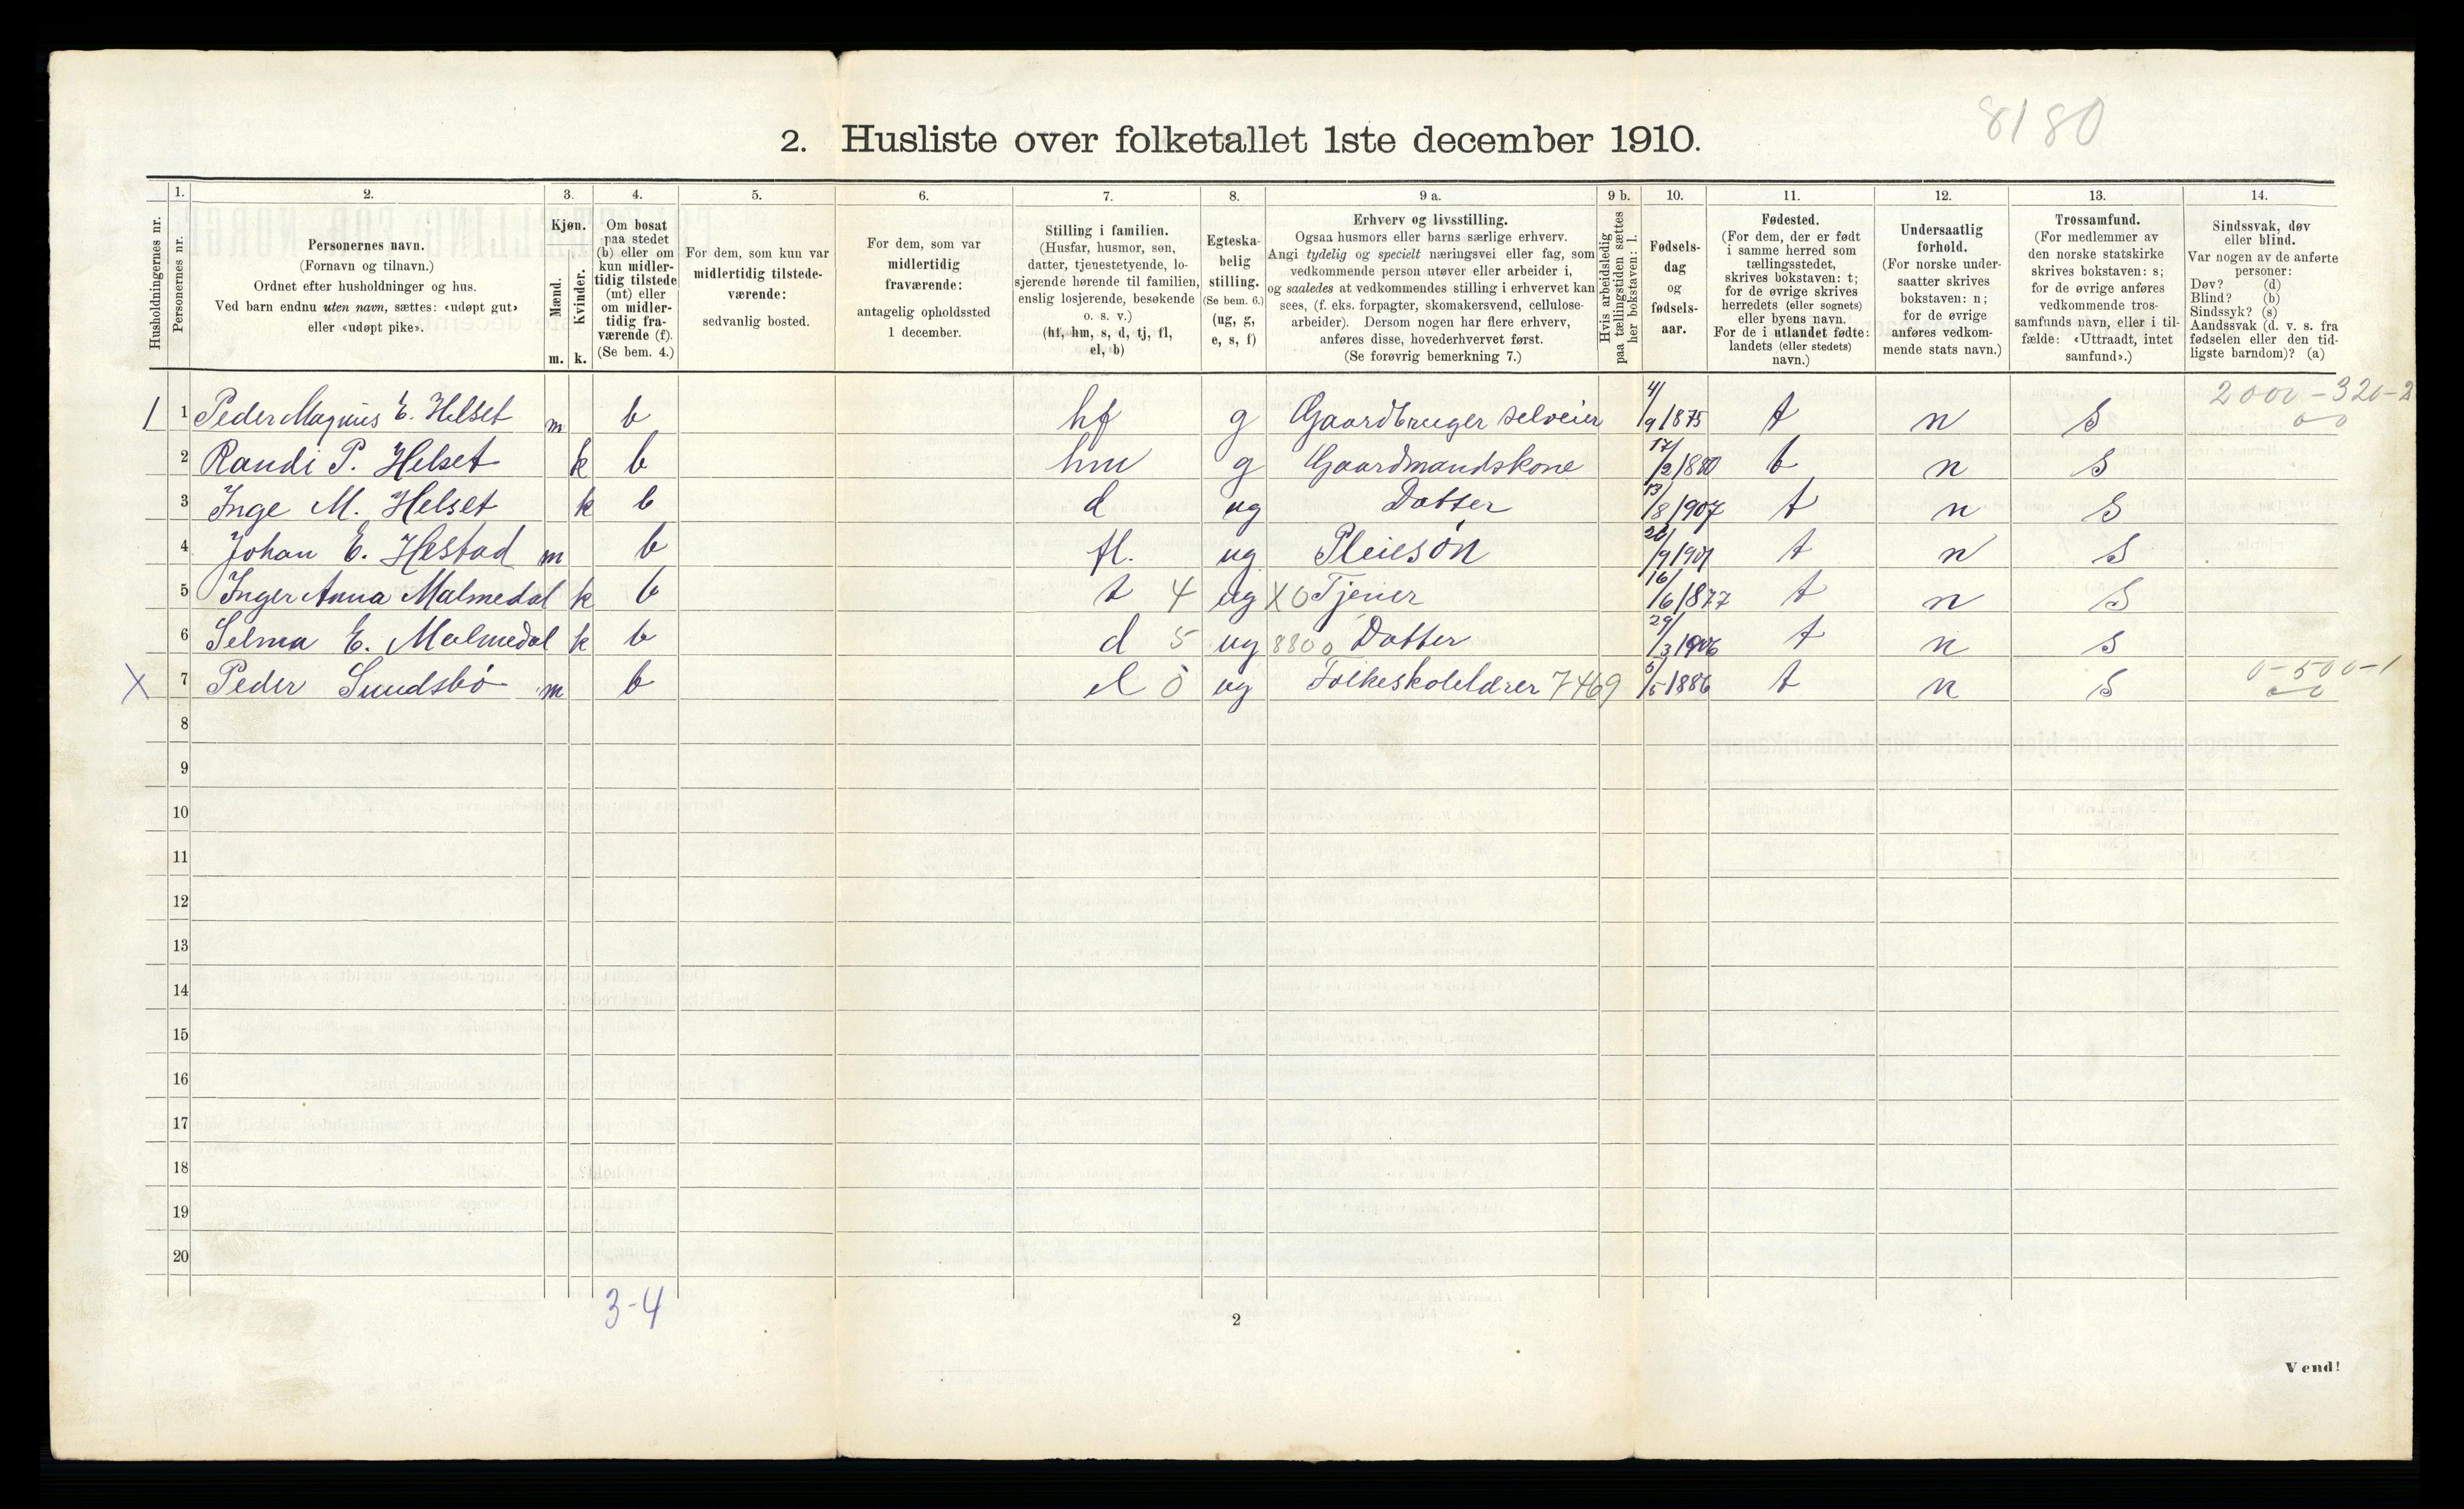 8180
2. Husliste over folketallet 1ste december 1910.
Husholdningernes nr.
1. Personernes nr.
2. Personernes navn.
(Fornavn og tilnavn.)
Ordnet efter husholdninger og hus.
Ved barn endnu uten navn, sættes: «udøpt gut»
eller «udøpt pike».
3. Kjøn.
Mænd. m.
Kvinder. k.
4. Om bosat
paa stedet
(b) eller om
kun midler-
tidig tilstede
(mt) eller
om midler-
tidig fra-
værende (f).
(Se bem. 4.)
5. For dem, som kun var
midlertidig tilstede-
værende:
sedvanlig bosted.
6. For dem, som var
midlertidig
fraværende:
antagelig opholdssted
1 december.
7. Stilling i familien.
(Husfar, husmor, søn,
datter, tjenestetyende, lo-
sjerende hørende til familien,
enslig losjerende, besøkende
o. s. v.)
(hf, hm, s, d, tj, fl,
el, b)
8. Egteska-
belig
stilling.
(Se bem. 6.)
(ug, g,
e, s, f)
9 a. Erhverv og livsstilling.
Ogsaa husmors eller barns særlige erhverv.
Angi tydelig og specielt næringsvei eller fag, som
vedkommende person utøver eller arbeider i,
og saaledes at vedkommendes stilling i erhvervet kan
sees, (f. eks. forpagter, skomakersvend, cellulose-
arbeider). Dersom nogen har flere erhverv,
anføres disse, hovederhvervet først.
(Se forøvrig bemerkning 7.)
9 b. Hvis arbeidsledig
paa tællingstiden sættes
her bokstaven: l.
10. Fødsels-
dag
og
fødsels-
aar.
11. Fødested.
(For dem, der er født
i samme herred som
tællingsstedet,
skrives bokstaven: t;
for de øvrige skrives
herredets (eller sognets)
eller byens navn.
For de i utlandet fødte:
landets (eller stedets)
navn.)
12. Undersaatlig
forhold.
(For norske under-
saatter skrives
bokstaven: n;
for de øvrige
anføres vedkom-
mende stats navn.)
13. Trossamfund.
(For medlemmer av
den norske statskirke
skrives bokstaven: s;
for de øvrige anføres
vedkommende tros-
samfunds navn, eller i til-
fælde: «Uttraadt, intet
samfund».)
14. Sindssvak, døv
eller blind.
Var nogen av de anførte
personer:
Døv? (d)
Blind? (b)
Sindssyk? (s)
Aandssvak (d. v. s. fra
fødselen eller den tid-
ligste barndom)? (a)
1 1 Peder Magnus E. Helset m b hf g Gaardbruger selveier 4/9 1875 t n s 2000-320-2
2 Randi P. Helset k b hm g Gaardmandskone 17/2 1880 t n s
3 Inge M. Helset k b d ug Datter 13/8 1907 t n s
4 Johan E. Hestad m b fl. ug Pleiesøn 1901 t n s
5 Inger Anna Malmedal k b t 4 ug X0 Tjener 16/6 1877 t n s
6 Selma E. Malmedal k b d 5 ug 8800 Datter 29/3 1906 t n s
X 7 Peder Sundsbö m b el 0 ug Folkeskolelærer 7469 5/5 1886 t n s 0-500-1
8
9
10
11
12
13
14
15
16
17
18
19
20
3-4
2
Vend!